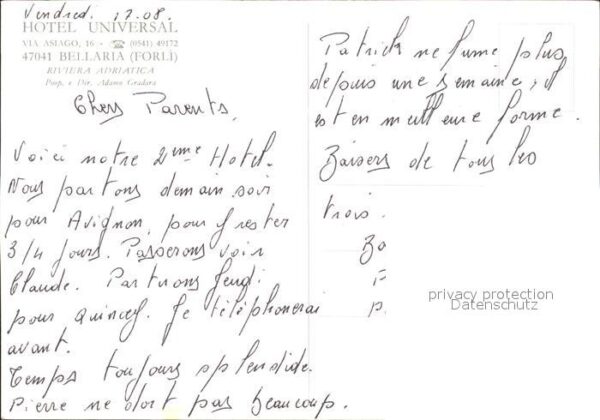 Vendredi 17.08.
HOTEL UNIVERSAL
VIA ASIAGO, 16 - ☎ (0541) 49172
47041 BELLARIA (FORLÌ)
RIVIERA ADRIATICA
Prop. e Dir. Adamo Gradara
Chers Parents,
Voici notre 2ème Hotel.
Nous partons demain soir
pour Avignon, pour y rester
3/4 jours. Passerons voir
Claude. Partirons Jeudi
pour Quincey. Je téléphonerai
avant.
Temps toujours splendide.
Pierre ne dort pas beaucoup.
Patrick ne fume plus
depuis une semaine, il
est en meilleure forme.
Baisers de tous les
trois.
privacy protection
Datenschutz